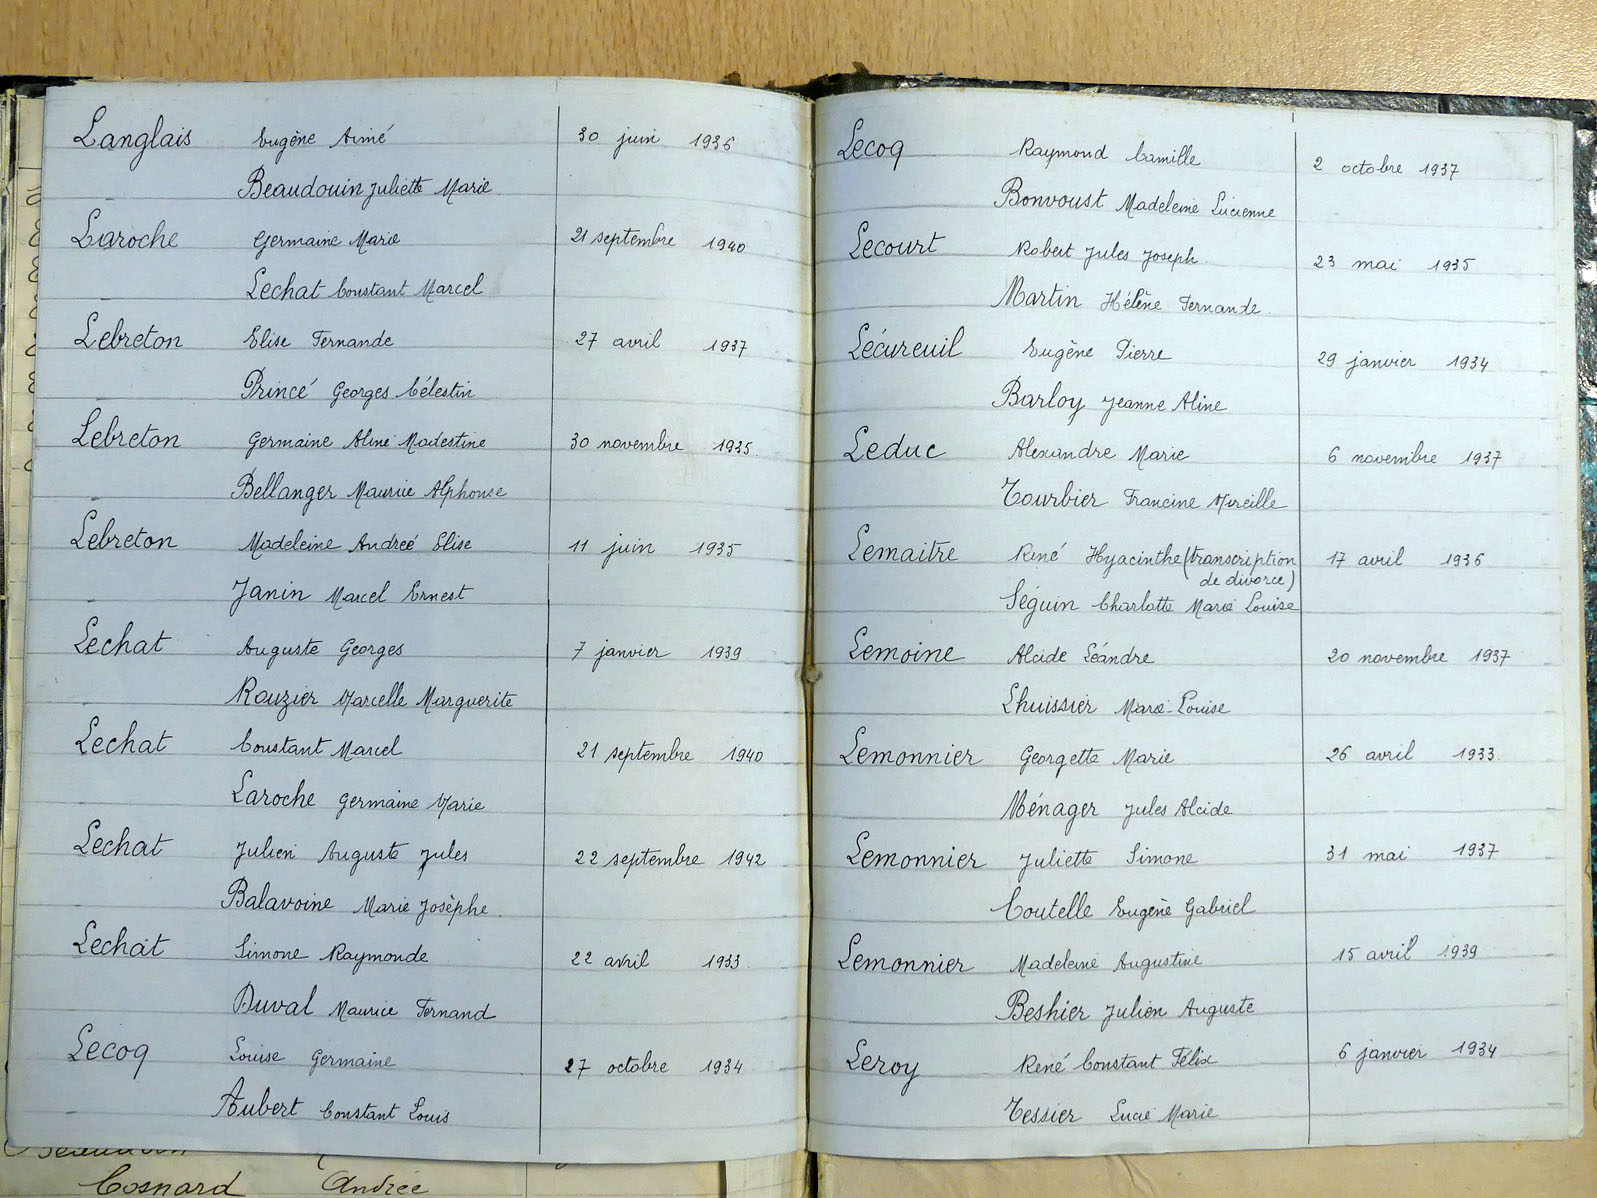 Langlais Eugène Aimé 30 juin 1936
Beaudouin Juliette Marie
Laroche Germaine Marie 21 septembre 1940
Lechat Constant Marcel
Lebreton Elise Fernande 27 avril 1937
Princé Georges Célestin
Lebreton Germaine Aline Modestine 30 novembre 1935.
Bellanger Maurice Alphonse
Lebreton Madeleine Andreé Elise 11 juin 1935
Janin Marcel Ernest
Lechat Auguste Georges 7 janvier 1939
Rouzier Marcelle Marguerite
Lechat Constant Marcel 21 septembre 1940
Laroche Germaine Marie
Lechat Julien Auguste Jules 22 septembre 1942
Balavoine Marie Josèphe.
Lechat Simone Raymonde 22 avril 1933.
Duval Maurice Fernand
Lecoq Louise Germaine 27 octobre 1934
Aubert Constant Louis
Cosnard Andrée
Lecoq Raymond Camille 2 octobre 1937
Bonvoust Madeleine Lucienne
Lecourt Robert Jules Joseph 23 mai 1935
Martin Hélène Fernande.
Lécureuil Eugène Pierre 29 janvier 1934
Barloy Jeanne Aline
Leduc Alexandre Marie 6 novembre 1937
Tourbier Francine Mireille
Lemaitre René Hyacinthe (transcription 17 avril 1936
de divorce)
Séguin Charlotte Marie Louise
Lemoine Alcide Léandre 20 novembre 1937
Lhuissier Marie-Louise
Lemonnier Georgette Marie 26 avril 1933.
Ménager Jules Alcide
Lemonnier Juliette Simone 31 mai 1937
Coutelle Eugène Gabriel
Lemonnier Madeleine Augustine 15 avril 1939
Beshier Julien Auguste
Leroy René Constant Félix 6 janvier 1934
Tessier Lucie Marie